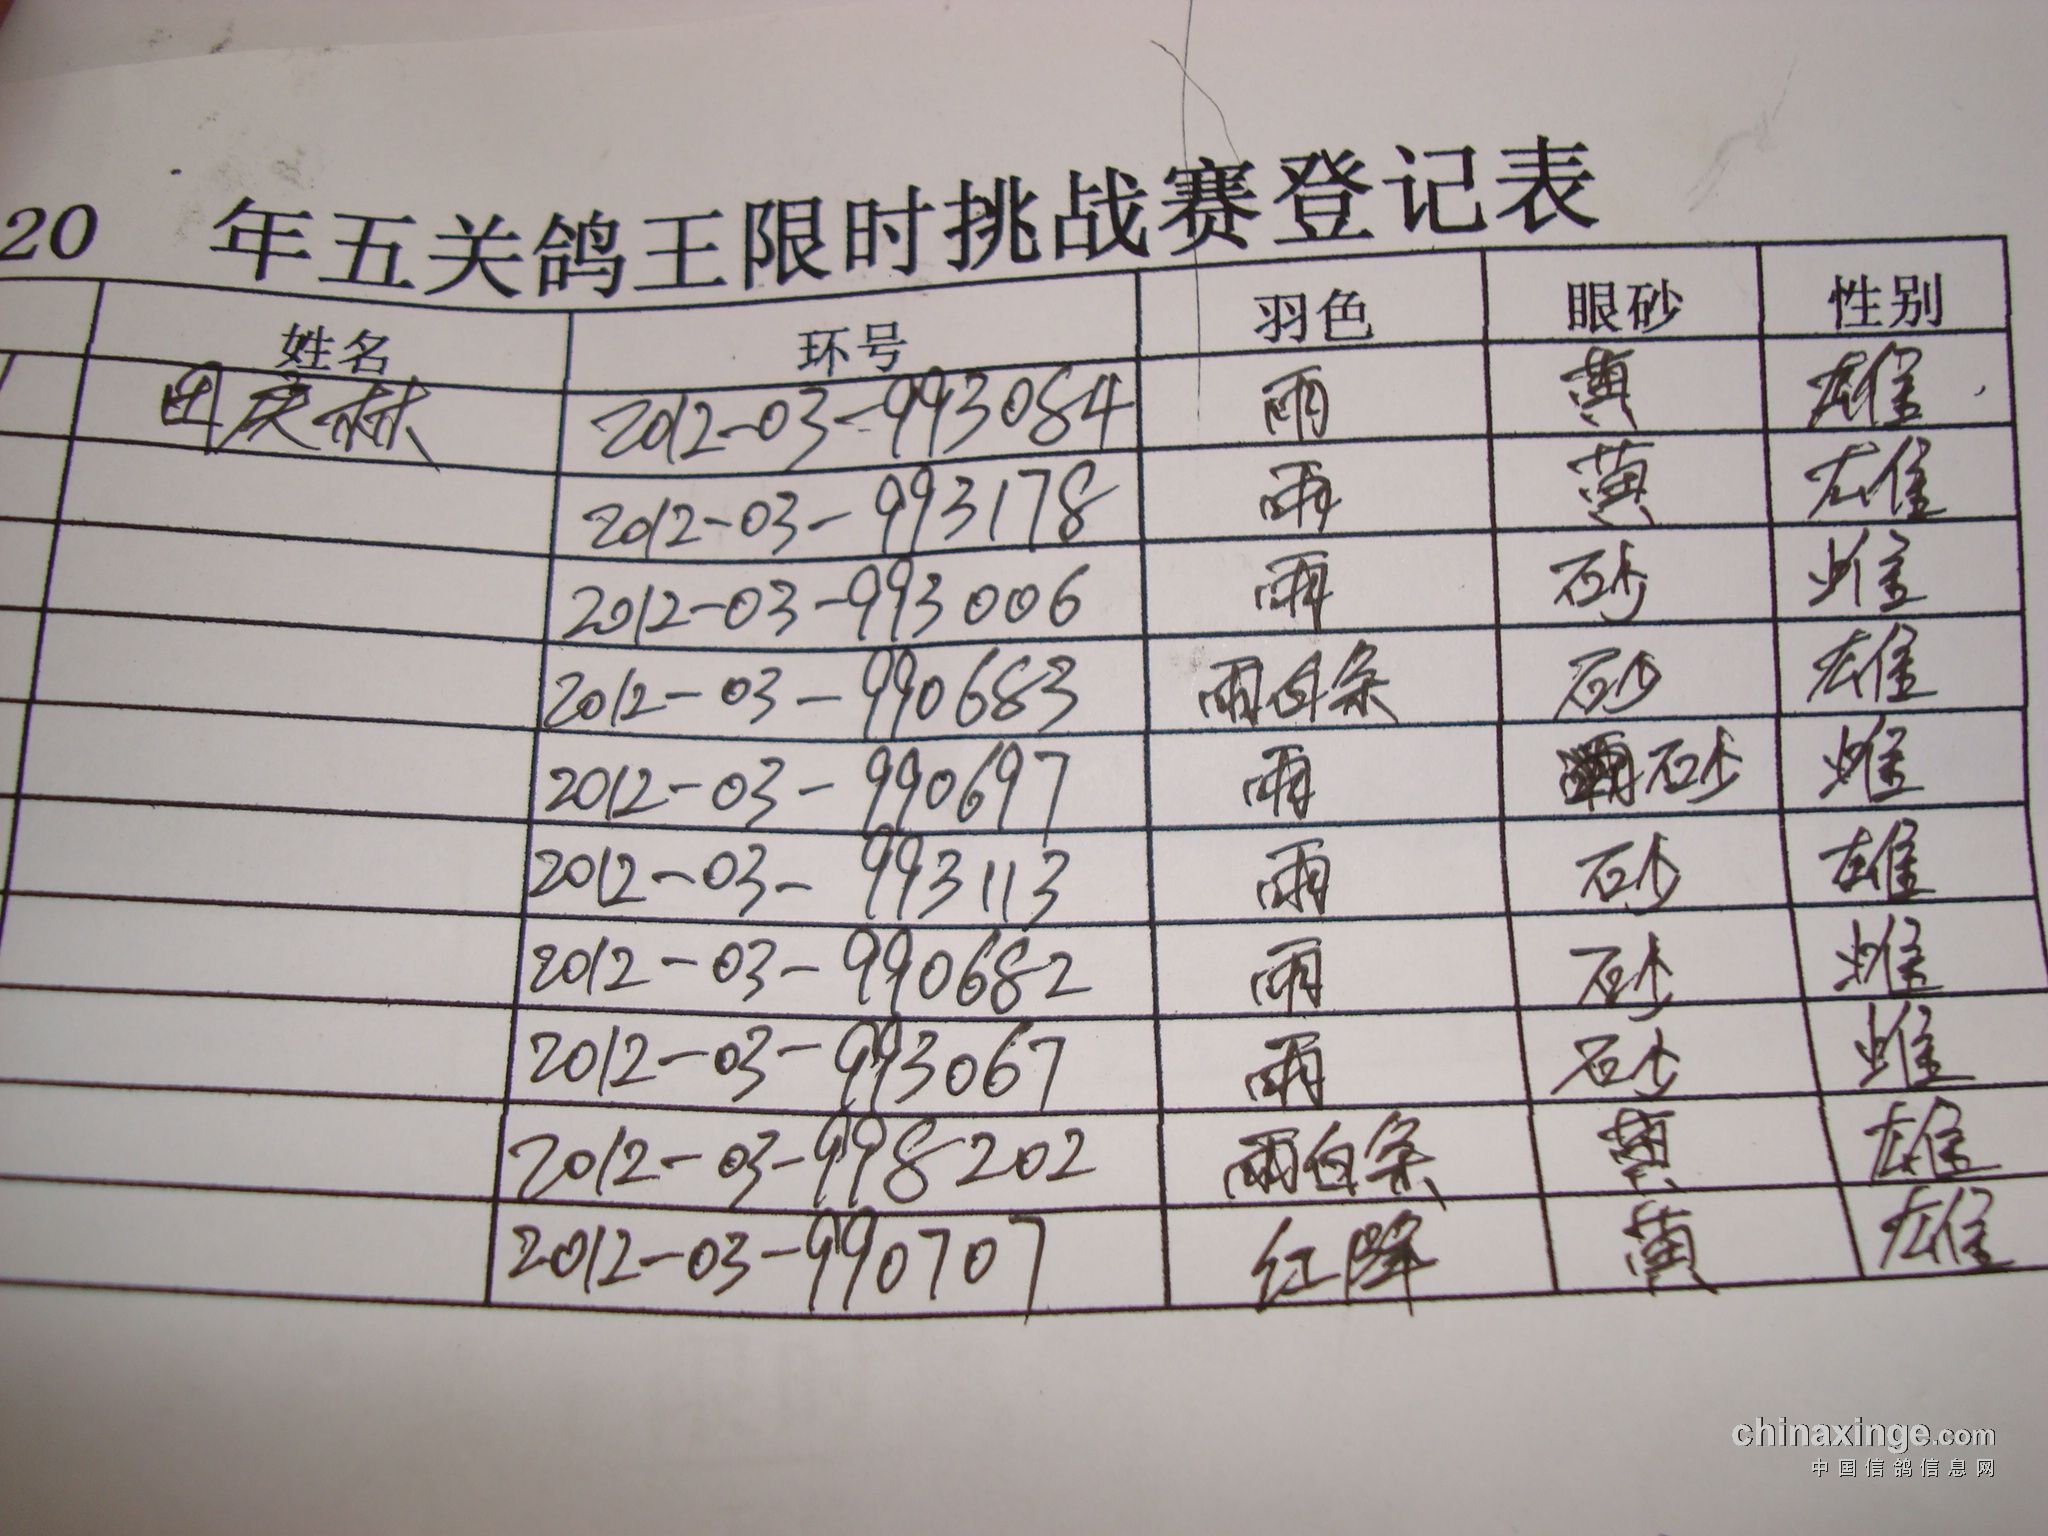 20 年五关鸽王限时挑战赛登记表
姓名 环号 羽色 眼砂 性别
田庆林 2012-03-993084 雨 黄 雄
2012-03-993178 雨 黄 雄
2012-03-993006 雨 砂 雌
2012-03-990683 雨白条 砂 雄
2012-03-990697 雨 砂 雌
2012-03-993113 雨 砂 雄
2012-03-990682 雨 砂 雌
2012-03-993067 雨 砂 雌
2012-03-998202 雨白条 黄 雄
2012-03-990707 红降 黄 雄
chinaxinge.com
中国信鸽信息网